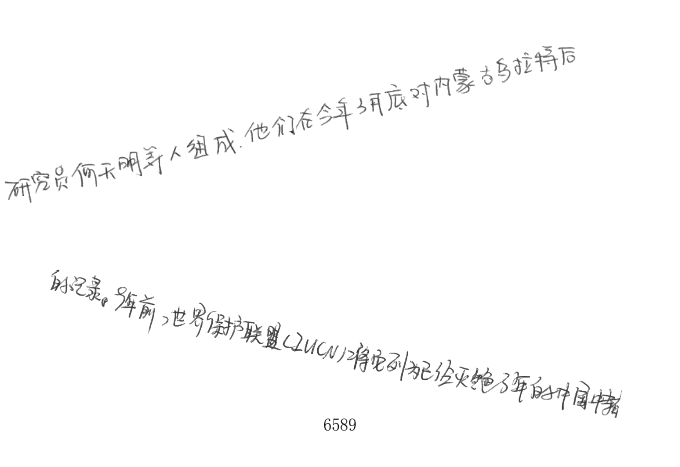 研究员何天明等人组成.他们在今年3月底对内蒙古乌拉特后
的记录。9年前,世界保护联盟(IUCN)将它列为已经灭绝了年的中国中
6589